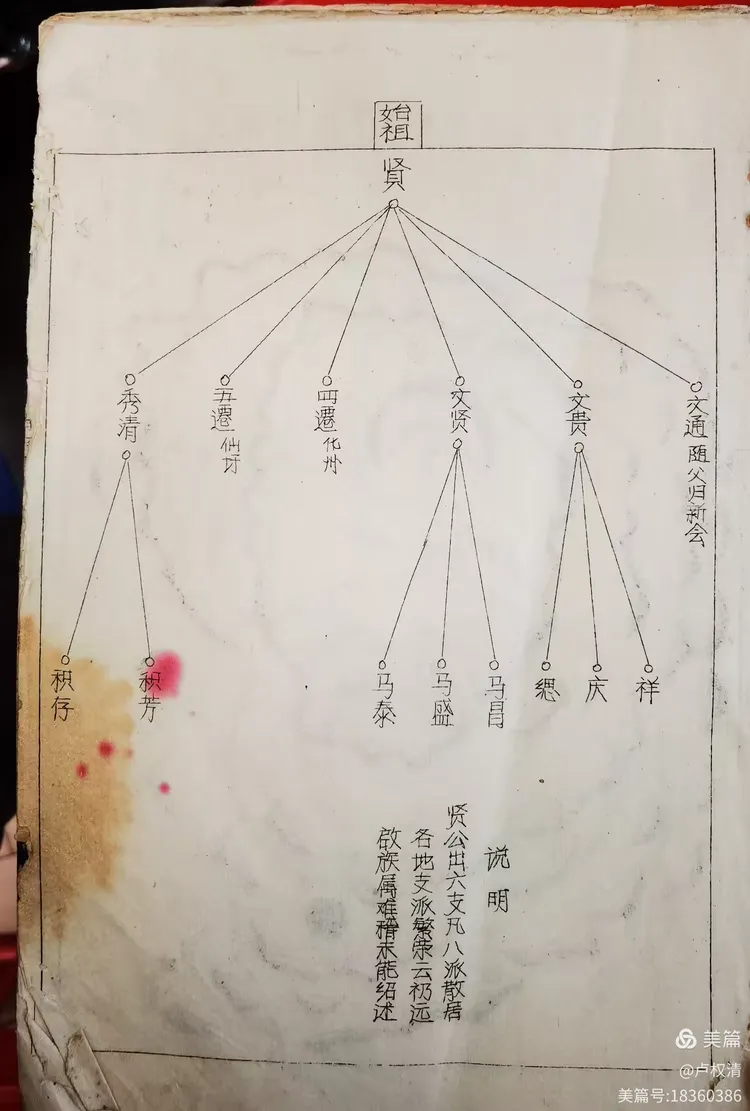 始祖
贤
文通 随父归新会
文贵
文贤
四遷 化州
五遷
秀清
祥
庆
马昌
马盛
马泰
积芳
积存
说明
贤公出六支凡八派散居
各地支派繁荣云礽远
啟族属难稽未能绍述
美篇
@卢权清
美篇号:18360386